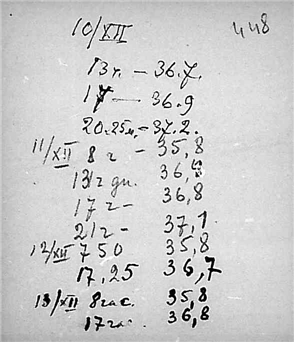 10/XII 448
13 ч. — 36.7.
17 — 36.9
20.25 м. — 37.2.
11/XII 8 ч — 35,8
13 ч дн. 36,8
17 ч — 36,8
21 ч — 37,1
12/XII 7 50 35,8
17,25 36,7
13/XII 8 час. 35,8
17 час. 36,8